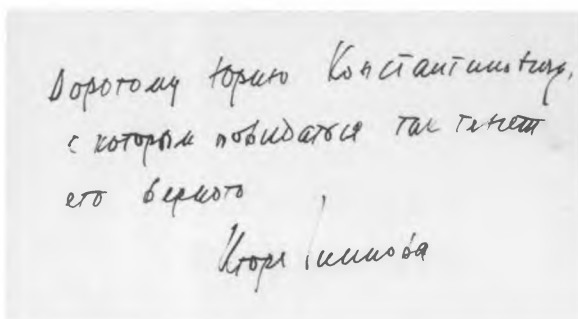 Дорогому Юрию Константиновичу,
с которым повидаться так тянет
его верного
Игоря Чиннова